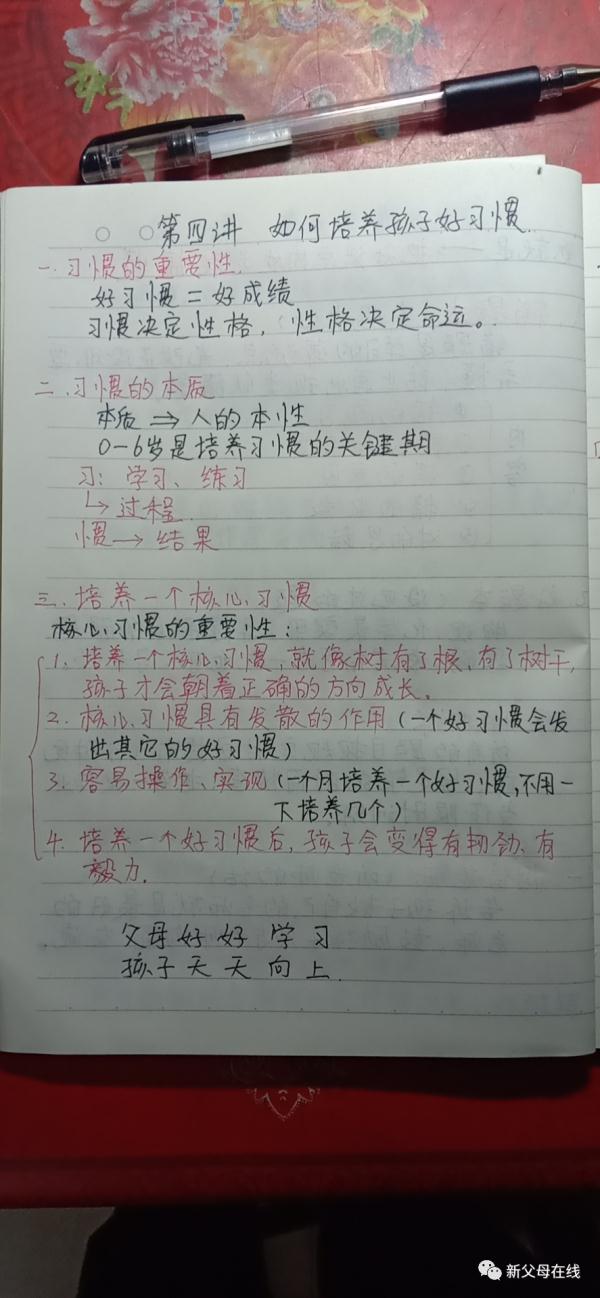 第四讲 如何培养孩子好习惯.
一.习惯的重要性.
好习惯=好成绩
习惯决定性格,性格决定命运。
二.习惯的本质
本质⇒人的本性
0-6岁是培养习惯的关键期
习:学习、练习
↳过程.
惯→结果
三.培养一个核心习惯
核心习惯的重要性:
1.培养一个核心习惯,就像树有了根,有了树干,
孩子才会朝着正确的方向成长。
2.核心习惯具有发散的作用(一个好习惯会发
出其它的好习惯)
3.容易操作、实现(一个月培养一个好习惯,不用一
下培养几个)
4.培养一个好习惯后,孩子会变得有韧劲、有
毅力.
父母好好学习
孩子天天向上.
新父母在线